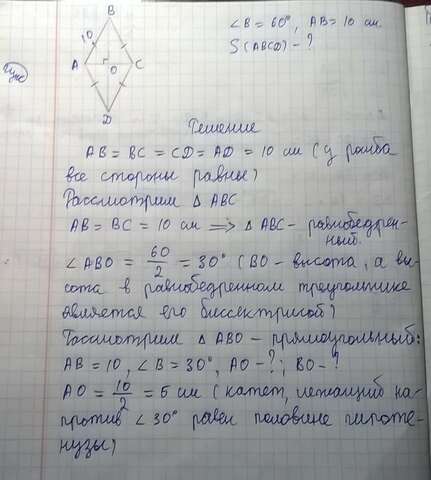 B
∠B = 60°, AB = 10 см
10
S (ABCD) - ?
A
O
C
D
Решение
AB = BC = CD = AD = 10 см (у ромба
все стороны равны)
Рассмотрим Δ ABC
AB = BC = 10 см ⟹ Δ ABC - равнобедрен-
ный.
∠ABO = 60/2 = 30° (BO - высота, а вы-
сота в равнобедренном треугольнике
является его биссектрисой)
Рассмотрим Δ ABO - прямоугольный:
AB = 10, ∠B = 30°, AO - ?; BO - ?
AO = 10/2 = 5 см (катет, лежащий на-
против ∠ 30° равен половине гипоте-
нузы)